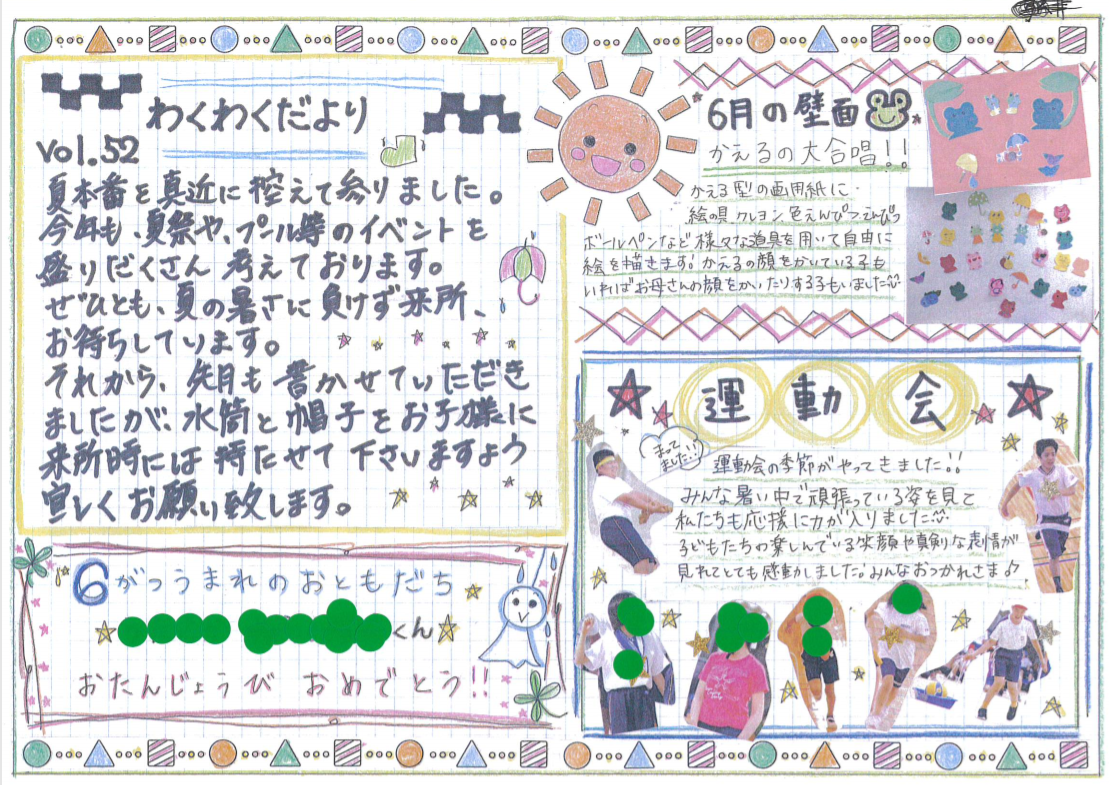 わくわくだより
vol.52
夏本番を真近に控えて参りました。
今年も、夏祭や、プール等のイベントを
盛りだくさん 考えております。
ぜひとも、夏の暑さに負けず来所、
お待ちしています。
それから、先月も書かせていただき
ましたが、水筒と帽子をお子様に
来所時には持たせて下さいますよう
宜しくお願い致します。
6がつうまれのおともだち
くん
おたんじょうび おめでとう!!
6月の壁面
かえるの大合唱!!
かえる型の画用紙に
絵の具 クレヨン 色えんぴつ
ボールペンなど様々な道具を用いて自由に
絵を描きます!かえるの顔をかいている子も
いればお母さんの顔をかいたりする子もいました
運動会
まって
ました!!
運動会の季節がやってきました!!
みんな暑い中で頑張っている姿を見て
私たちも応援に力が入りました
子どもたちの楽しんでいる笑顔や真剣な表情が
見れてとても感動しました。みんなおつかれさま♪